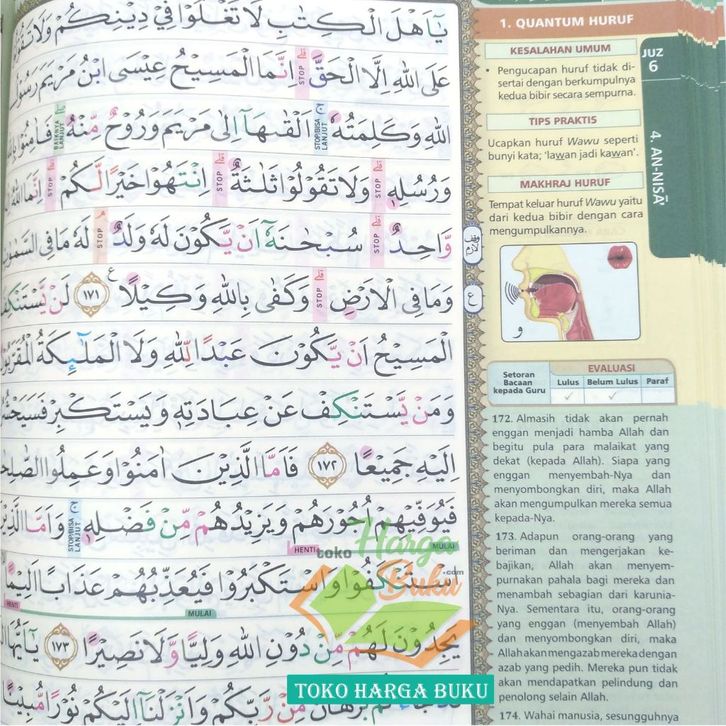 يٰٓاَهْلَ الْكِتٰبِ لَا تَغْلُوْا فِيْ دِيْنِكُمْ وَلَا
عَلَى اللّٰهِ اِلَّا الْحَقَّ ۗ اِنَّمَا الْمَسِيْحُ عِيْسَى ابْنُ مَرْيَمَ
اللّٰهِ وَكَلِمَتُهٗ ۚ اَلْقٰىهَآ اِلٰى مَرْيَمَ وَرُوْحٌ مِّنْهُ ۖ
وَرُسُلِهٖ ۗ وَلَا تَقُوْلُوْا ثَلٰثَةٌ ۗ اِنْتَهُوْا خَيْرًا لَّكُمْ ۗ اِنَّمَا اللّٰهُ
وَّاحِدٌ ۗ سُبْحٰنَهٗٓ اَنْ يَّكُوْنَ لَهٗ وَلَدٌ ۘ لَهٗ مَا فِى
وَمَا فِى الْاَرْضِ ۗ وَكَفٰى بِاللّٰهِ وَكِيْلًا ࣖ ١٧١ لَنْ
الْمَسِيْحُ اَنْ يَّكُوْنَ عَبْدًا لِّلّٰهِ وَلَا الْمَلٰۤىِٕكَةُ
وَمَنْ يَّسْتَنْكِفْ عَنْ عِبَادَتِهٖ وَيَسْتَكْبِرْ
اِلَيْهِ جَمِيْعًا ١٧٢ فَاَمَّا الَّذِيْنَ اٰمَنُوْا وَعَمِلُوا
فَيُوَفِّيْهِمْ اُجُوْرَهُمْ وَيَزِيْدُهُمْ مِّنْ فَضْلِهٖ ۚ وَاَمَّا
HENTI MULAI
اسْتَنْكَفُوْا وَاسْتَكْبَرُوْا فَيُعَذِّبُهُمْ عَذَابًا اَلِيْمًا
HENTI MULAI
يَجِدُوْنَ لَهُمْ مِّنْ دُوْنِ اللّٰهِ وَلِيًّا وَّلَا نَصِيْرًا ١٧٣
مِّنْ رَّبِّكُمْ وَاَنْزَلْنَآ اِلَيْكُمْ نُوْرًا مُّبِيْنًا
1. QUANTUM HURUF
KESALAHAN UMUM
• Pengucapan huruf tidak di-
sertai dengan berkumpulnya
kedua bibir secara sempurna.
TIPS PRAKTIS
Ucapkan huruf Wawu seperti
bunyi kata; 'lawan jadi kawan'.
MAKHRAJ HURUF
Tempat keluar huruf Wawu yaitu
dari kedua bibir dengan cara
mengumpulkannya.
و
JUZ
6
4. AN-NISĀ'
ع
Setoran
Bacaan
kepada Guru
EVALUASI
Lulus Belum Lulus Paraf
✓ ✓
172. Almasih tidak akan pernah
enggan menjadi hamba Allah dan
begitu pula para malaikat yang
dekat (kepada Allah). Siapa yang
enggan menyembah-Nya dan
menyombongkan diri, maka Allah
akan mengumpulkan mereka semua
kepada-Nya.
173. Adapun orang-orang yang
beriman dan mengerjakan ke-
bajikan, Allah akan menyem-
purnakan pahala bagi mereka dan
menambah sebagian dari karunia-
Nya. Sementara itu, orang-orang
yang enggan (menyembah Allah)
dan menyombongkan diri, maka
Allah akan mengazab mereka dengan
azab yang pedih. Mereka pun tidak
akan mendapatkan pelindung dan
penolong selain Allah.
174. Wahai manusia, sesungguhnya
toko Harga
Buku .com
TOKO HARGA BUKU